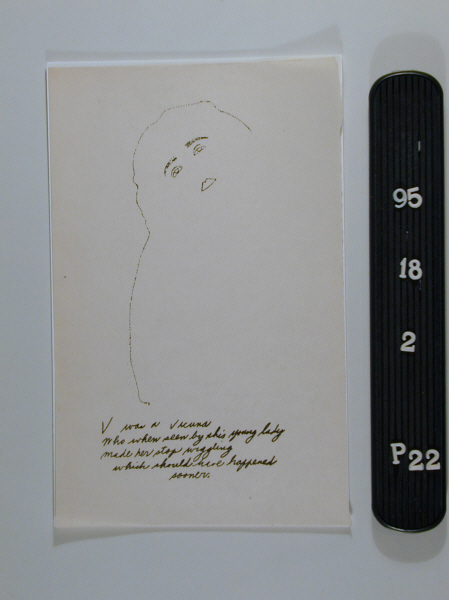 V was a Vicuna
Who when seen by this young lady
made her stop wiggling
which should have happened
sooner.
95
18
2
P22